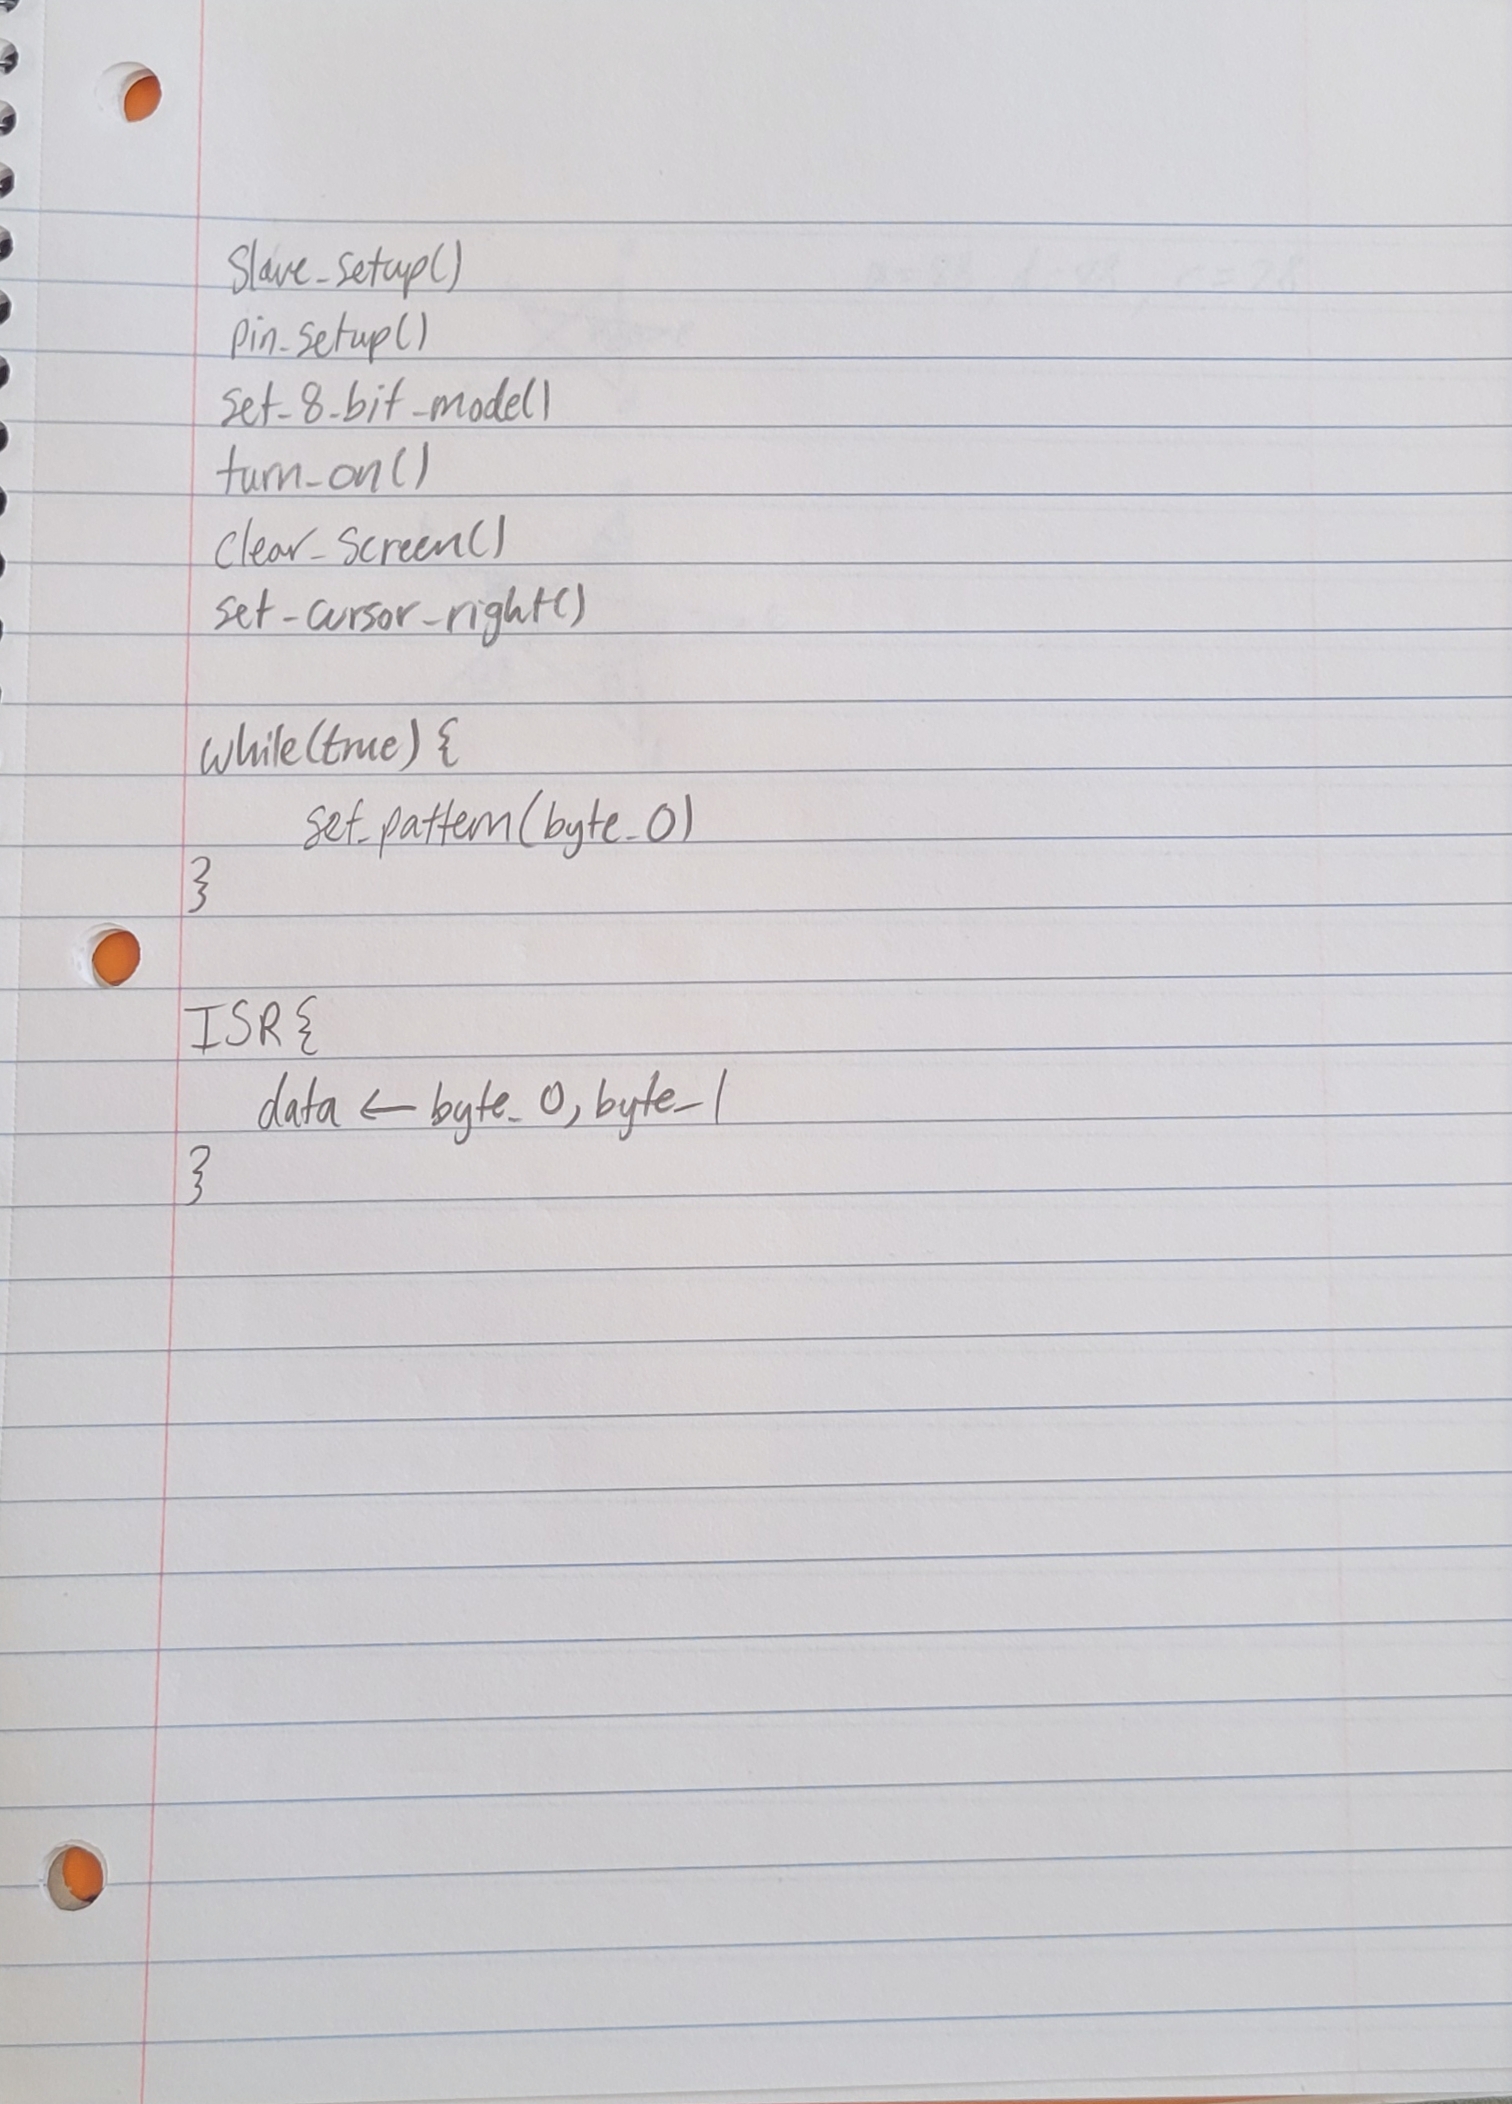 Slave_setup()
pin_setup()
set_8_bit_mode()
turn_on()
clear_screen()
set_cursor_right()
while(true) {
set_pattern(byte_0)
}
ISR {
data ← byte_0, byte_1
}